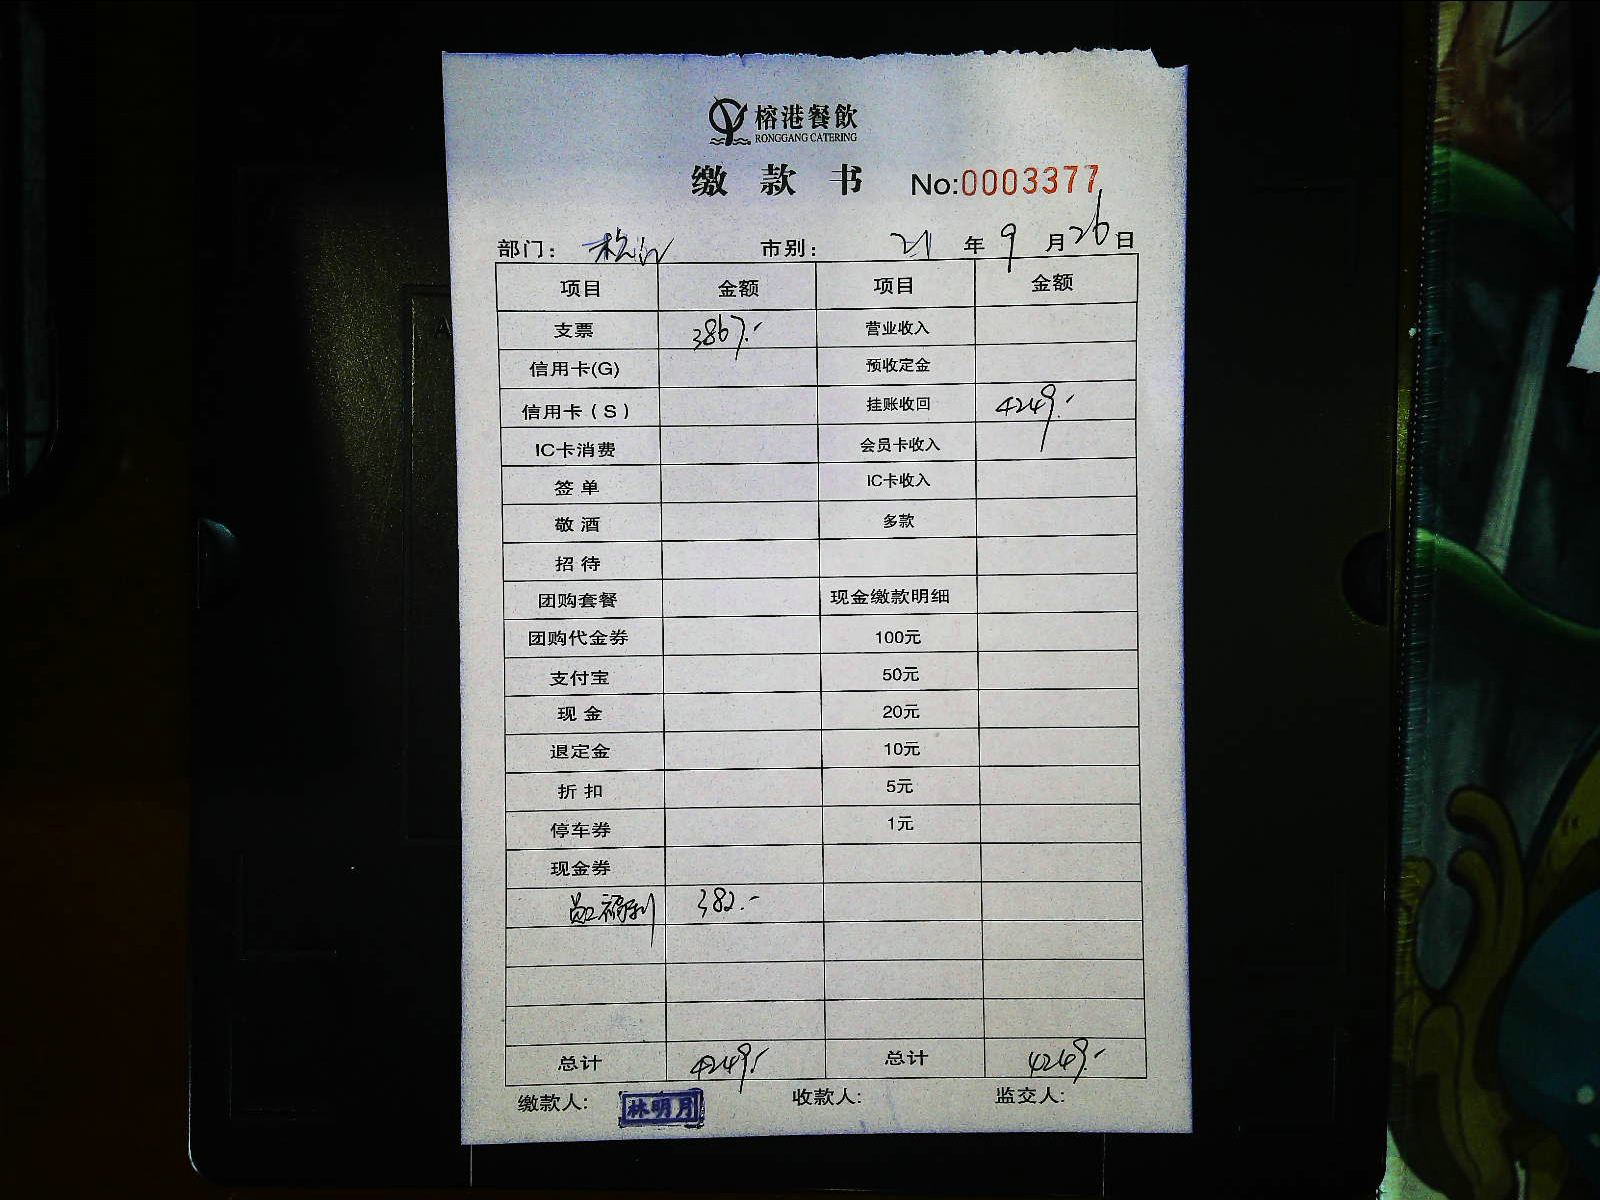 榕港餐飲
RONGGANG CATERING
缴 款 书 No:0003377
部门: 市别: 21 年 9 月 26 日
项目 金额 项目 金额
支票 3867.- 营业收入
信用卡(G) 预收定金
信用卡(S) 挂账收回 4249.-
IC卡消费 会员卡收入
签 单 IC卡收入
敬 酒 多款
招 待
团购套餐 现金缴款明细
团购代金券 100元
支付宝 50元
现 金 20元
退定金 10元
折 扣 5元
停车券 1元
现金券
员工福利 382.-
总计 4249.- 总计 4249.-
缴款人: 林明月 收款人: 监交人: